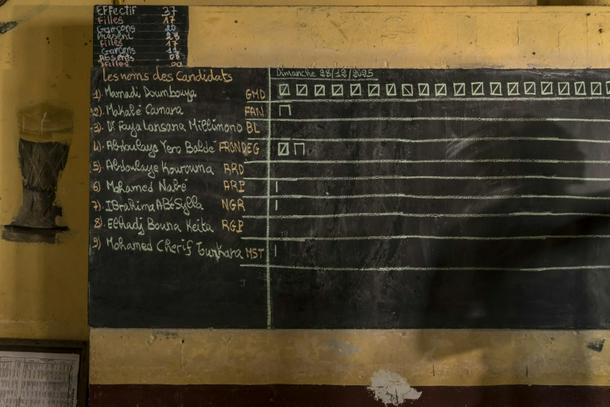 Effectif 37
Filles 17
Garçons
Présent
Filles 17
Garçons
Absents
Filles
Les noms des Candidats
Dimanche 28/12/2025
1). Mamadi Doumbouya GMD
2). Makalé Camara FAN
3). Dr Faya Lansana Millimono BL
4). Abdoulaye Yero Baldé FRONDEG
5) Abdoulaye Kourouma RRD
6) Mohamed Nabé
7). Ibrahima Abé Sylla NGR
8). Elhadj Bouna Keita RGP
9) Mohamed Cherif Tounkara MST